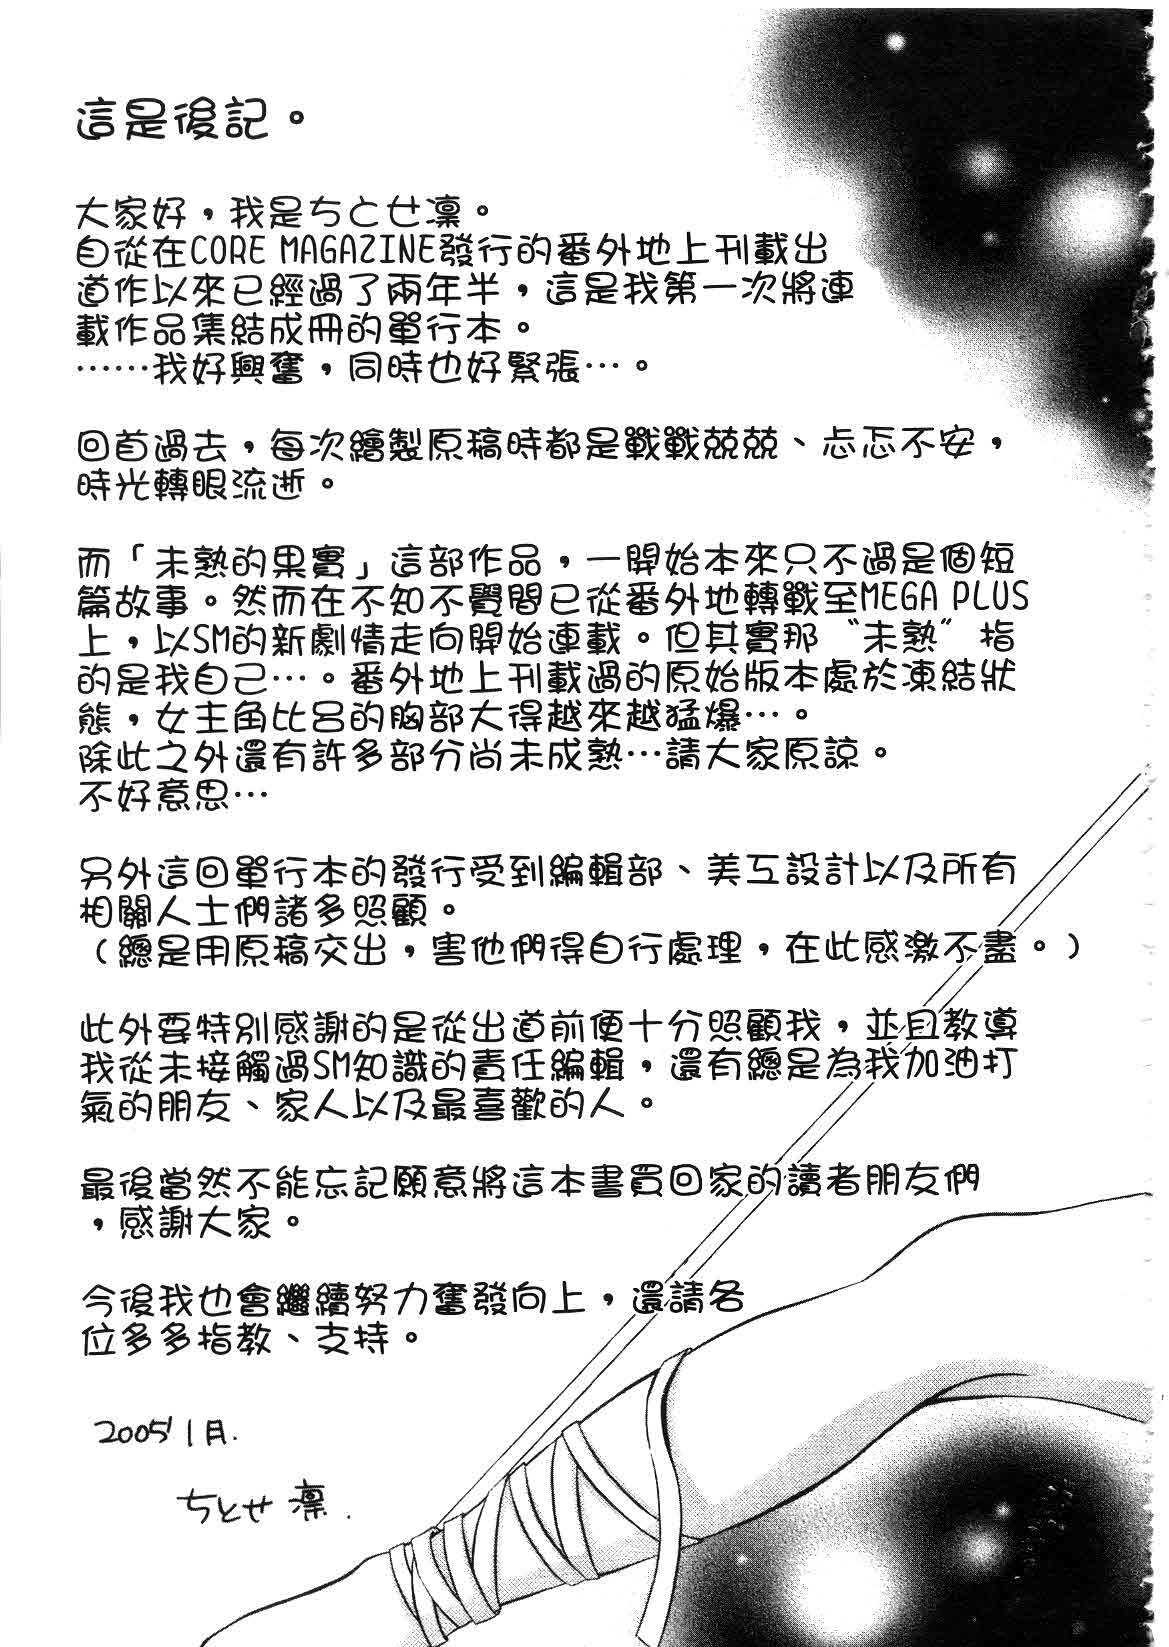 這是後記。
大家好，我是ちとせ凜。
自從在CORE MAGAZINE發行的番外地上刊載出
道作以來已經過了兩年半，這是我第一次將連
載作品集結成冊的單行本。
……我好興奮，同時也好緊張…。
回首過去，每次繪製原稿時都是戰戰兢兢、忐忑不安，
時光轉眼流逝。
而「未熟的果實」這部作品，一開始本來只不過是個短
篇故事。然而在不知不覺間已從番外地轉戰至MEGA PLUS
上，以SM的新劇情走向開始連載。但其實那〝未熟〞指
的是我自己…。番外地上刊載過的原始版本處於凍結狀
態，女主角比呂的胸部大得越來越猛爆…。
除此之外還有許多部分尚未成熟…請大家原諒。
不好意思…
另外這回單行本的發行受到編輯部、美工設計以及所有
相關人士們諸多照顧。
（總是用原稿交出，害他們得自行處理，在此感激不盡。）
此外要特別感謝的是從出道前便十分照顧我，並且教導
我從未接觸過SM知識的責任編輯，還有總是為我加油打
氣的朋友、家人以及最喜歡的人。
最後當然不能忘記願意將這本書買回家的讀者朋友們
，感謝大家。
今後我也會繼續努力奮發向上，還請各
位多多指教、支持。
2005 1月.
ちとせ 凛.